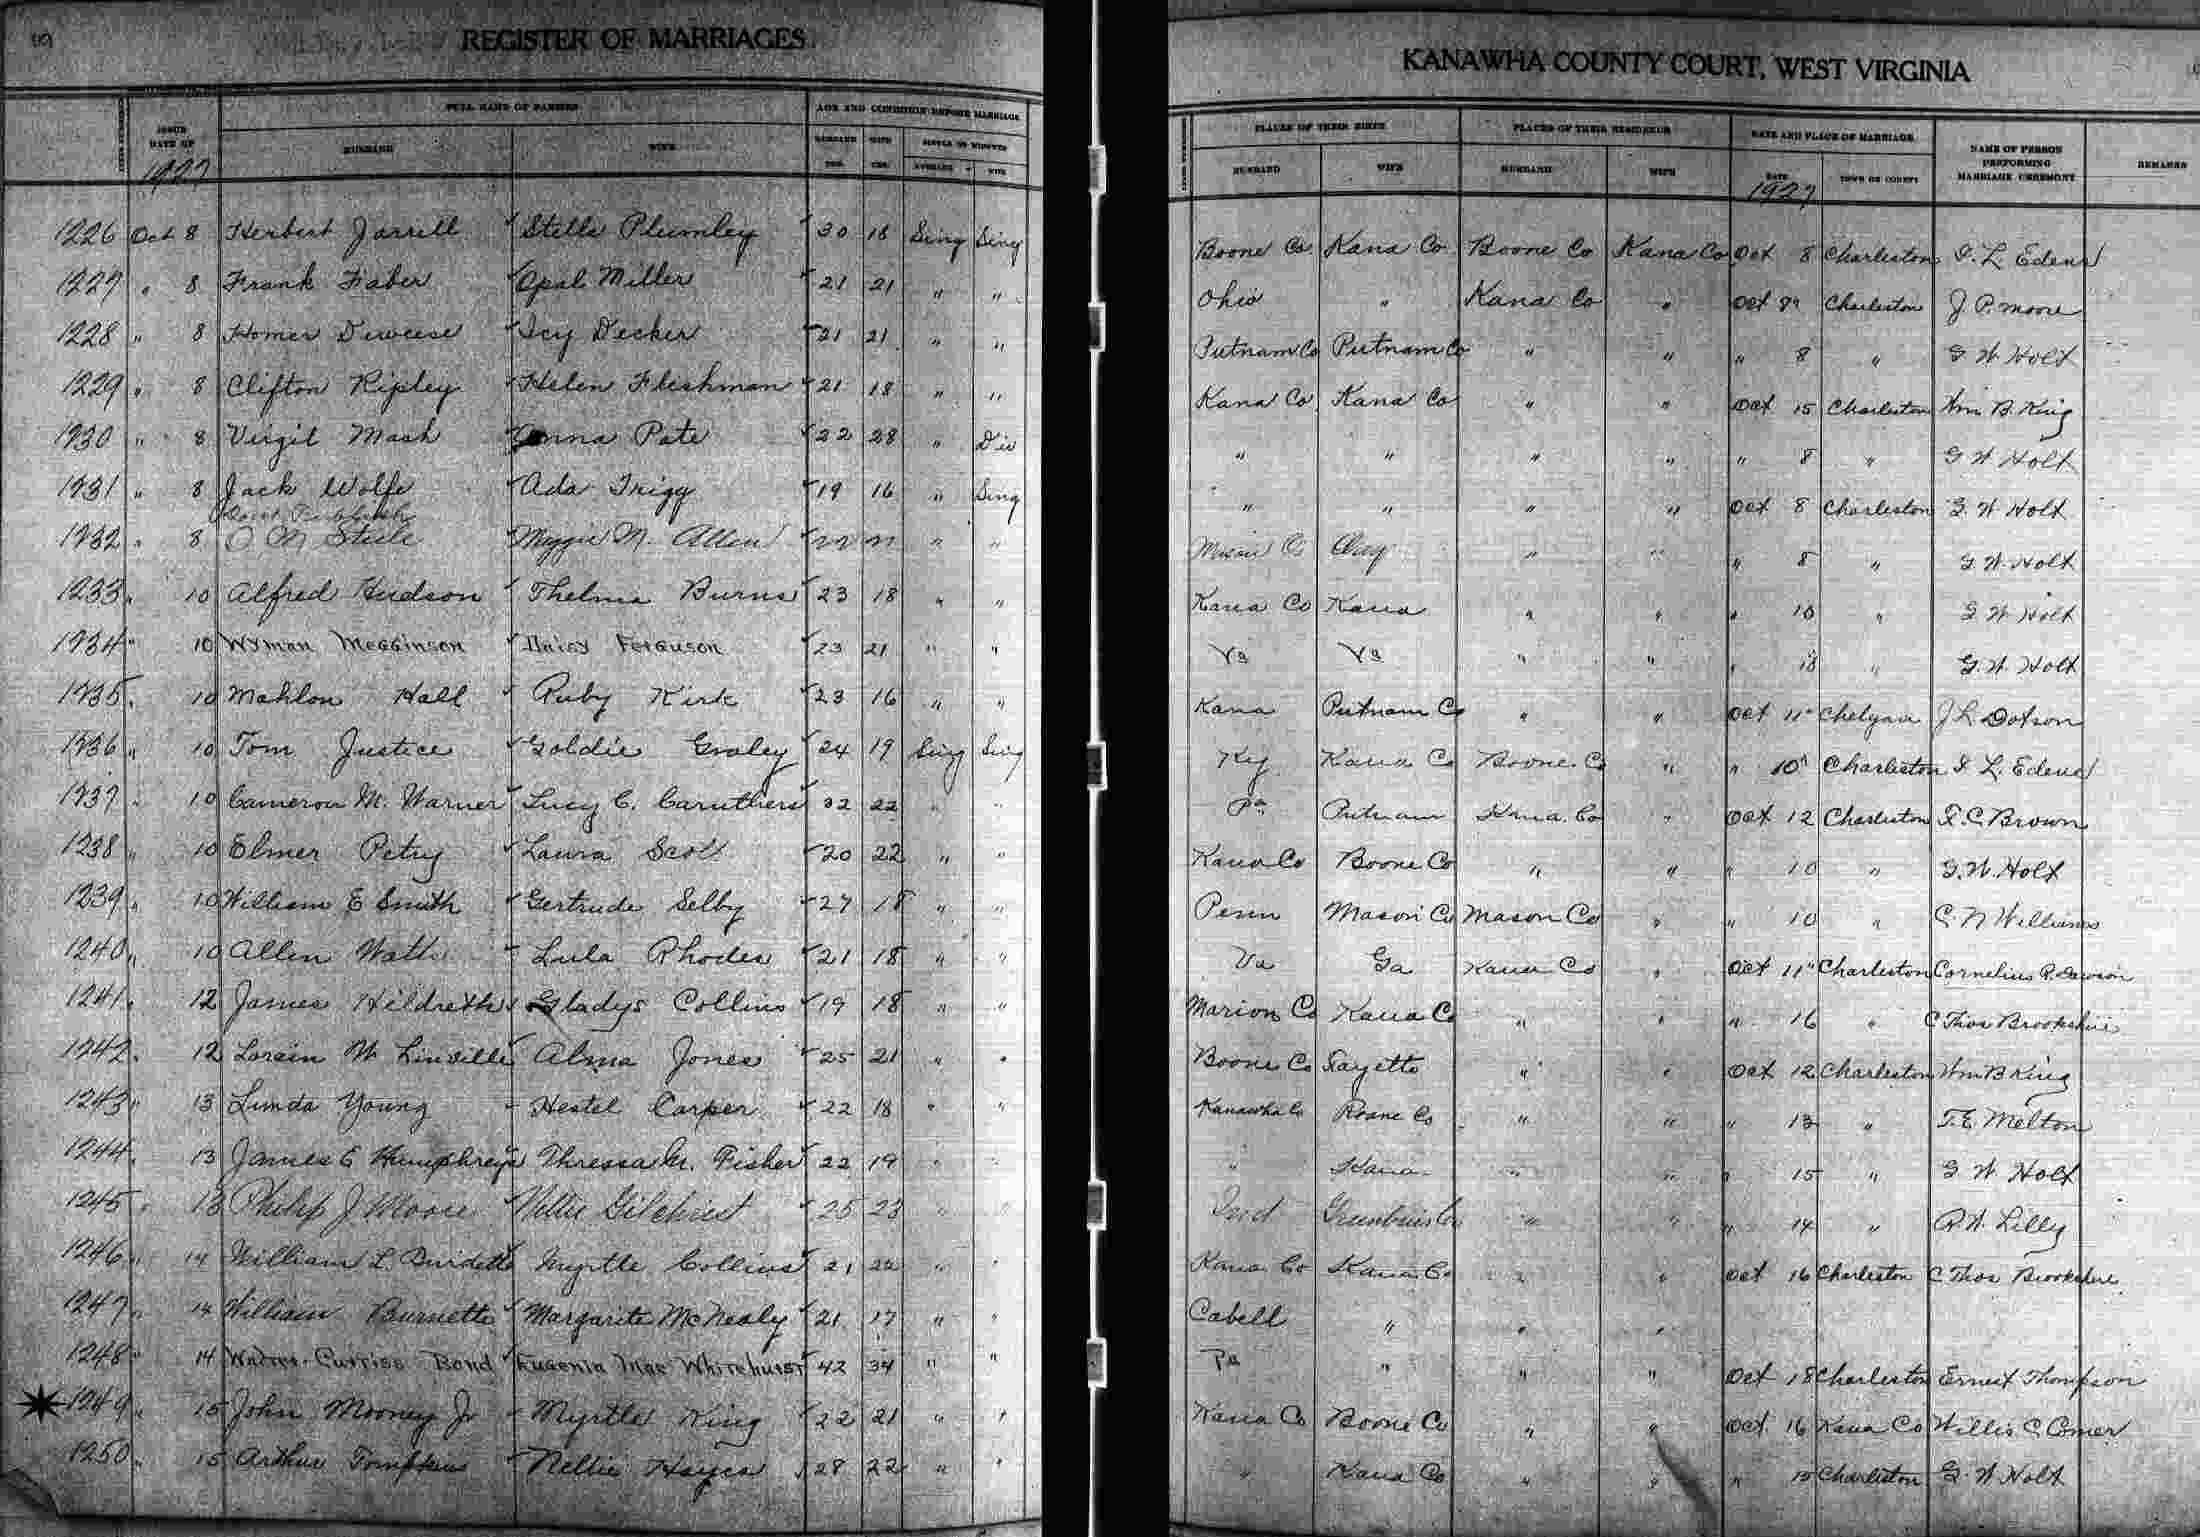 REGISTER OF MARRIAGES
KANAWHA COUNTY COURT, WEST VIRGINIA
ISSUE DATE OF 1927
FULL NAME OF PARTIES
HUSBAND WIFE
AGE AND CONDITION BEFORE MARRIAGE
HUSBAND WIFE SINGLE OR WIDOWED
PLACES OF THEIR BIRTH PLACES OF THEIR RESIDENCE DATE AND PLACE OF MARRIAGE NAME OF PERSON PERFORMING MARRIAGE CEREMONY REMARKS
HUSBAND WIFE HUSBAND WIFE DATE 1927 TOWN OR COUNTY
1226 Oct 8 Herbert Jarrell Stella Plumley 30 18 Sing Sing Boone Co. Kana Co. Boone Co Kana Co Oct 8 Charleston I. L. Edens
1227 " 8 Frank Faber Opal Miller 21 21 " " Ohio " Kana Co " Oct 8" Charleston J P. Moore
1228 " 8 Homer Deweese Icy Decker 21 21 " " Putnam Co Putnam Co " " " 8 " G W Holt
1229 " 8 Clifton Ripley Helen Fleshman 21 18 " " Kana Co Kana Co " " Oct 15 Charleston Wm B. King
1230 " 8 Virgil Mash Pate 22 28 " Div " " " " " 8 " G W Holt
1231 " 8 Jack Wolfe Ada Trigg 19 16 " Sing " " " " Oct 8 Charleston G. W Holt
1232 " 8 O. N Steele Maggie M. Allen 22 21 " " Mason Co Clay " " " 8 " G. W. Holt
1233 " 10 Alfred Hudson Thelma Burns 23 18 " " Kana Co Kana " " " 10 " G W Holt
1234 " 10 Wyman Megginson Daisy Ferguson 23 21 " " Va Va " " " 10 " G. W. Holt
1235 " 10 Mahlon Hall Ruby Kirk 23 16 " " Kana Putnam Co " " Oct 11" Chelyan J L Dotson
1236 " 10 Tom Justice Goldie Graley 24 19 Sing Sing Ky Kana Co Boone Co " " 10" Charleston I. L. Edens
1237 " 10 Cameron M. Warner Lucy C. Caruthers 32 22 " " Pa Putnam Kana. Co " Oct 12 Charleston F. C. Brown
1238 " 10 Elmer Petry Laura Scott 20 22 " " Kana Co Boone Co " " " 10 " G. W. Holt
1239 " 10 William E Smith Gertrude Selby 27 18 " " Penn Mason Co Mason Co " " 10 " C. N Williams
1240 " 10 Allen Watts Lula Rhodes 21 18 " " Va Ga Kana Co " Oct 11" Charleston Cornelius R. Dawson
1241 " 12 James Hildreth Gladys Collins 19 18 " " Marion Co Kana Co " " " 16 " C Thos Brookshire
1242 " 12 Lorain W Linville Alma Jones 25 21 " " Boone Co Fayette " " Oct 12 Charleston Wm B King
1243 " 13 Linda Young Hestel Carper 22 18 " " Kanawha Co Roane Co " " " 13 " T. E. Melton
1244 " 13 James E Humphreys Thressa M. Fisher 22 19 " " " Kana " " " 15 " G W Holt
1245 " 13 Philip J Moore Nellie Gilchrist 25 23 " " Ind Greenbrier Co " " " 14 " R. W. Lilly
1246 " 14 William L. Burdette Myrtle Collins 21 22 " " Kana. Co Kana Co " " Oct 16 Charleston C Thos Brookshire
1247 " 14 William Burnette Margarite McNealy 21 17 " " Cabell " " "
1248 " 14 Curtiss Bond Eugenia Mae Whitehurst 42 34 " " Pa " " " Oct 18 Charleston Ernest Thompson
1249 " 15 John Mooney Jr Myrtle King 22 21 " " Kana Co Boone Co " " Oct 16 Kana Co Willis C. Comer
1250 " 15 Arthur Tompkins Nellie Hayes 28 22 " " " Kana Co " " " 15 Charleston G. W Holt